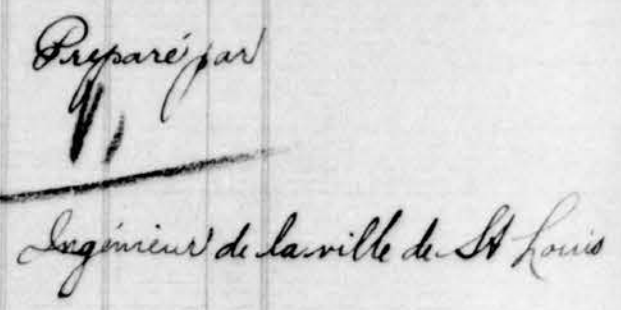 Preparé par
Ingénieur de la ville de St Louis